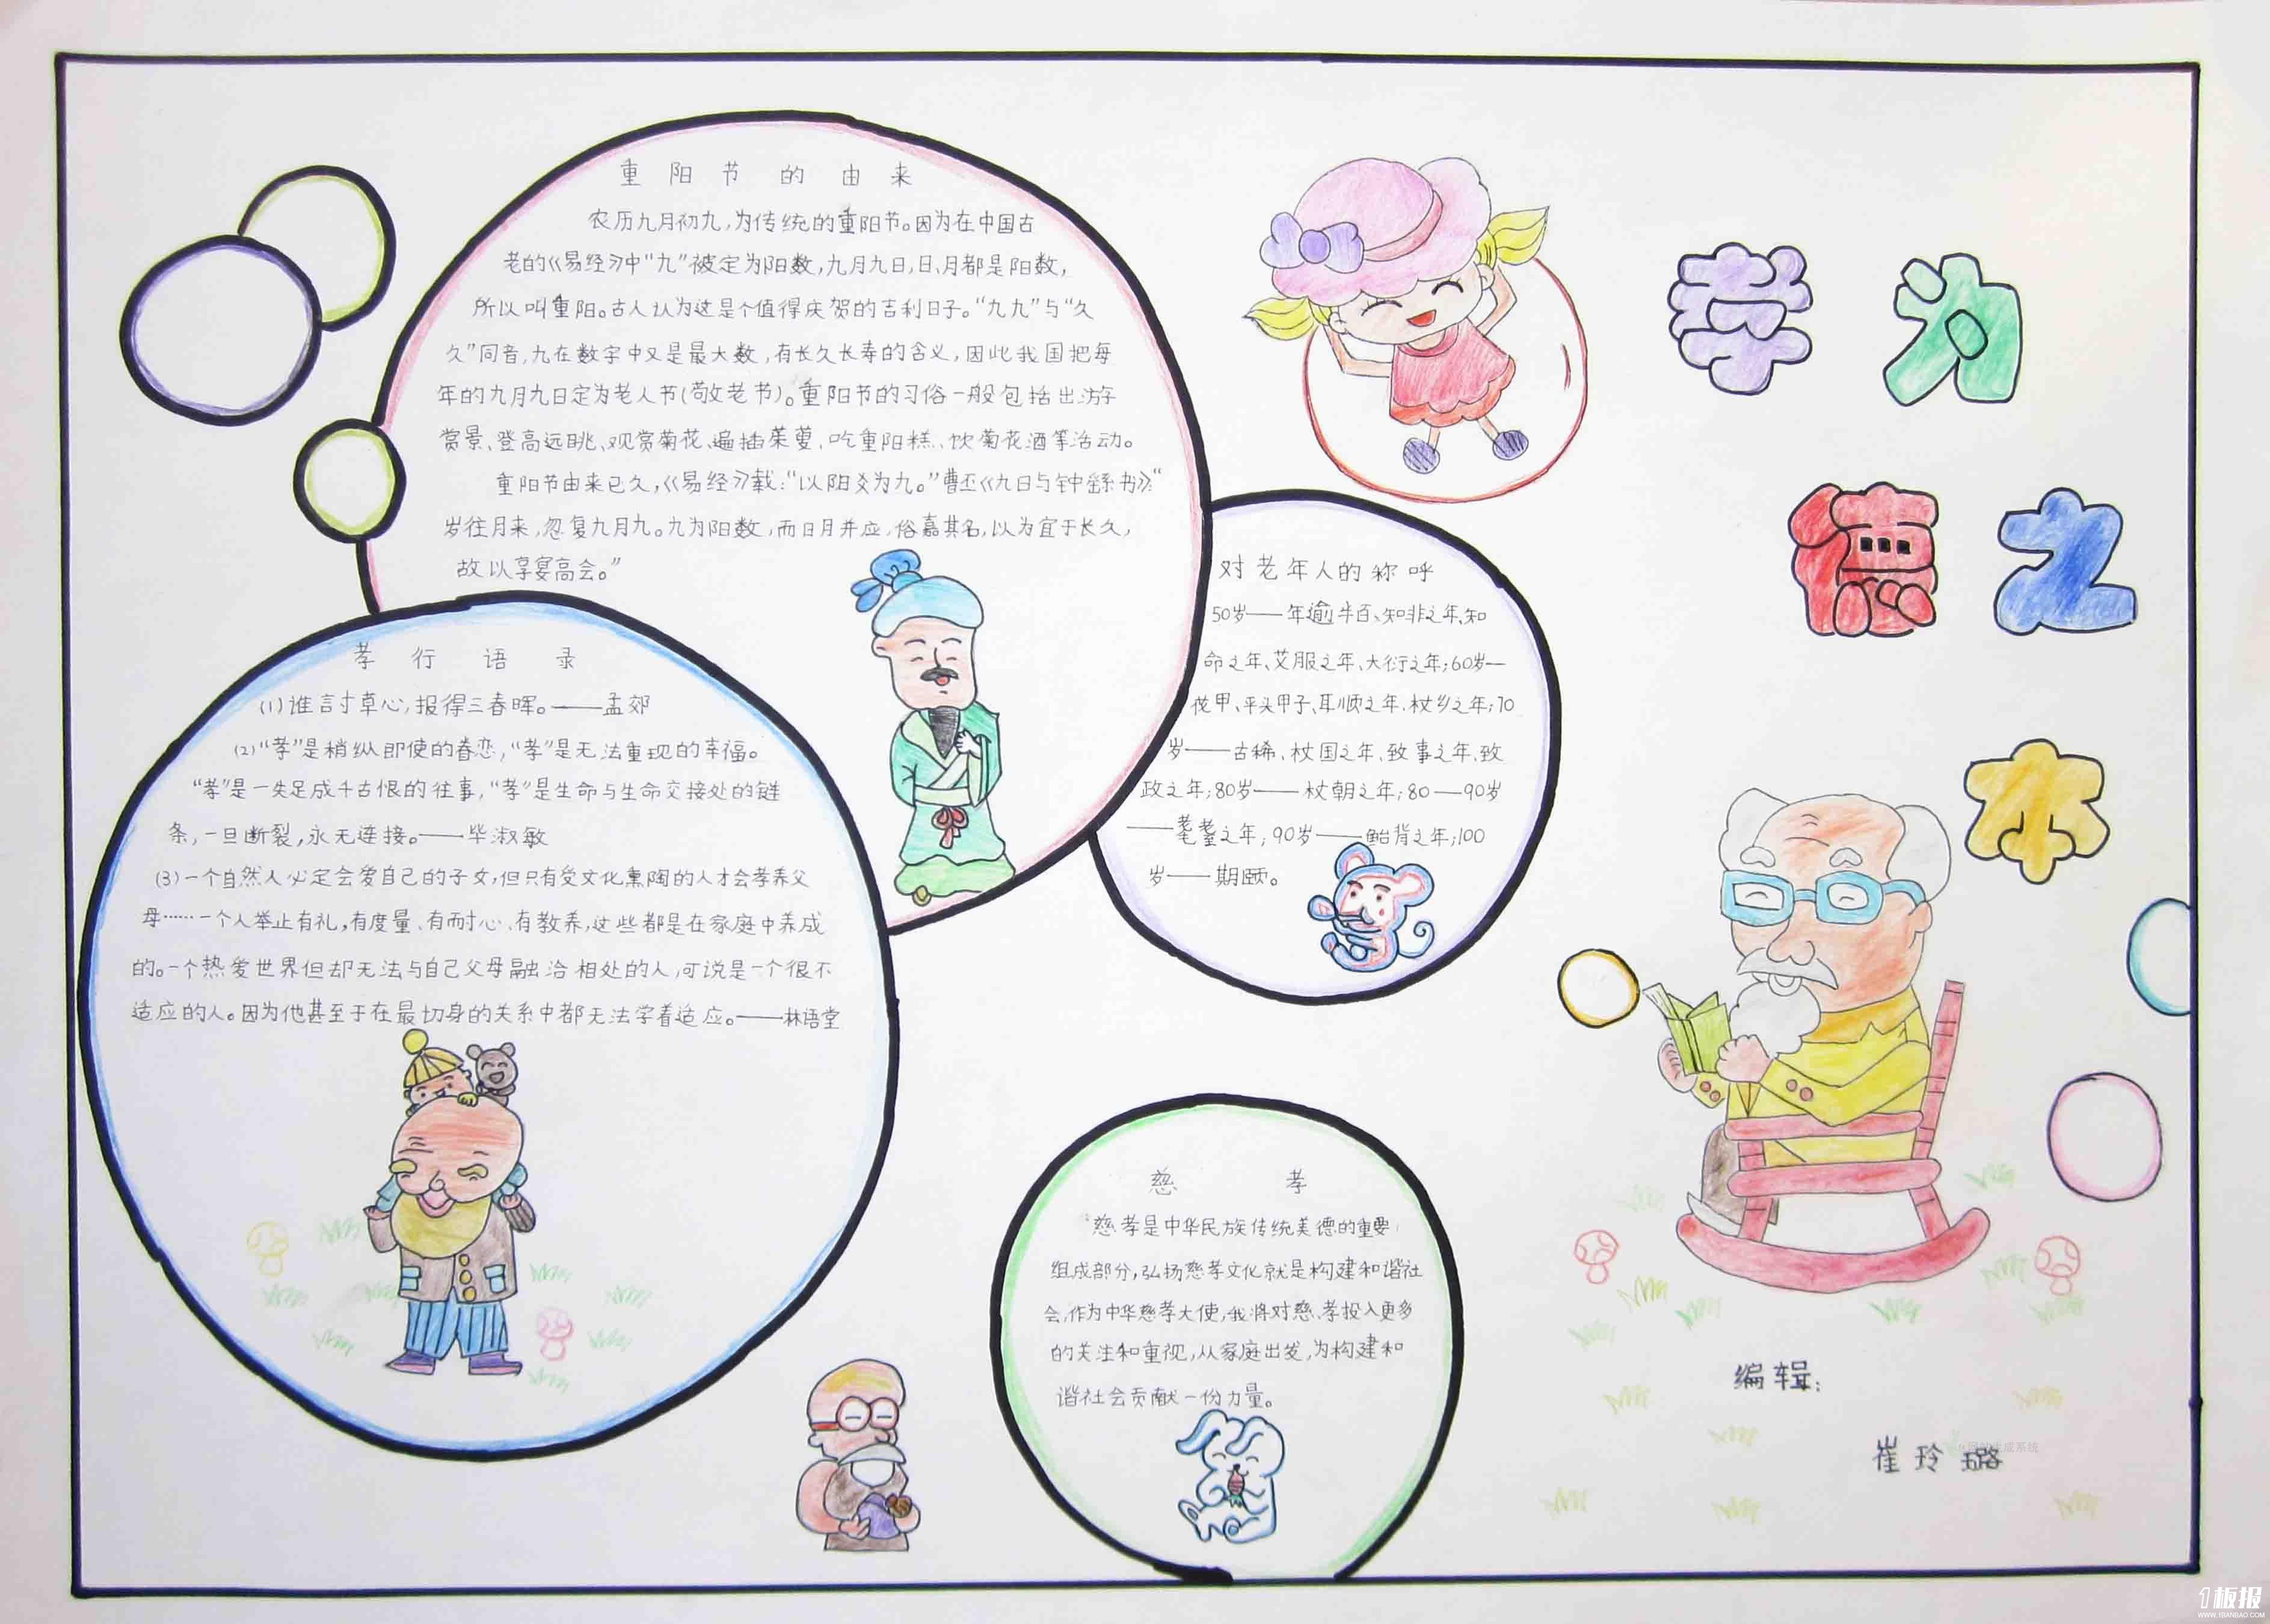 孝为
德之
本
重阳节的由来
农历九月初九,为传统的重阳节。因为在中国古
老的《易经》中“九”被定为阳数,九月九日,日、月都是阳数,
所以叫重阳。古人认为这是个值得庆贺的吉利日子。“九九”与“久
久”同音,九在数字中又是最大数,有长久长寿的含义,因此我国把每
年的九月九日定为老人节(敬老节)。重阳节的习俗一般包括出游
赏景、登高远眺、观赏菊花、遍插茱萸、吃重阳糕、饮菊花酒等活动。
重阳节由来已久,《易经》载:“以阳爻为九。”曹丕《九日与钟繇书》:“
岁往月来,忽复九月九。九为阳数,而日月并应,俗嘉其名,以为宜于长久,
故以享宴高会。”
对老年人的称呼
50岁——年逾半百、知非之年、知
命之年、艾服之年、大衍之年;60岁—
花甲、平头甲子、耳顺之年、杖乡之年;70
岁——古稀、杖国之年、致事之年、致
政之年;80岁——杖朝之年;80—90岁
——耄耋之年;90岁——鲐背之年;100
岁——期颐。
孝行语录
(1)谁言寸草心,报得三春晖。——孟郊
(2)“孝”是稍纵即使的眷恋,“孝”是无法重现的幸福。
“孝”是一失足成千古恨的往事,“孝”是生命与生命交接处的链
条,一旦断裂,永无连接。——毕淑敏
(3)一个自然人必定会爱自己的子女,但只有受文化熏陶的人才会孝养父
母……一个人举止有礼,有度量、有耐心、有教养,这些都是在家庭中养成
的。一个热爱世界但却无法与自己父母融洽相处的人,可说是一个很不
适应的人。因为他甚至于在最切身的关系中都无法学着适应。——林语堂
慈孝
慈孝是中华民族传统美德的重要
组成部分,弘扬慈孝文化就是构建和谐社
会,作为中华慈孝大使,我将对慈、孝投入更多
的关注和重视,从家庭出发,为构建和
谐社会贡献一份力量。
编辑:
崔玲璐
1板报
WWW.1BANBAO.COM